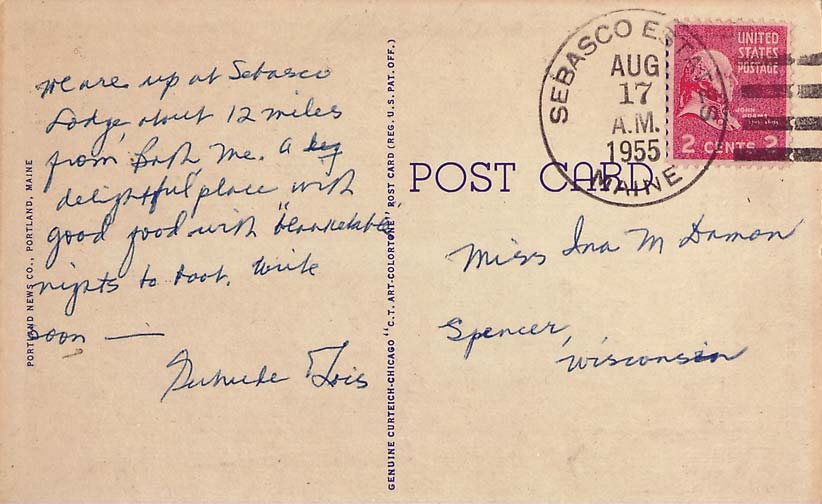 We are up at Sebasco
Lodge, about 12 miles
from Bath, Me. A
delightful place with
good food with "blanketable"
nights to boot. Write
soon —
Gertrude & Lois
PORTLAND NEWS CO., PORTLAND, MAINE
GENUINE CURTEICH-CHICAGO "C.T. ART-COLORTONE" POST CARD (REG. U.S. PAT. OFF.)
POST CARD
SEBASCO ESTATES
AUG
17
A.M.
1955
MAINE
UNITED
STATES
POSTAGE
JOHN ADAMS
2 CENTS 2
Miss Ina M Damon
Spencer,
Wisconsin